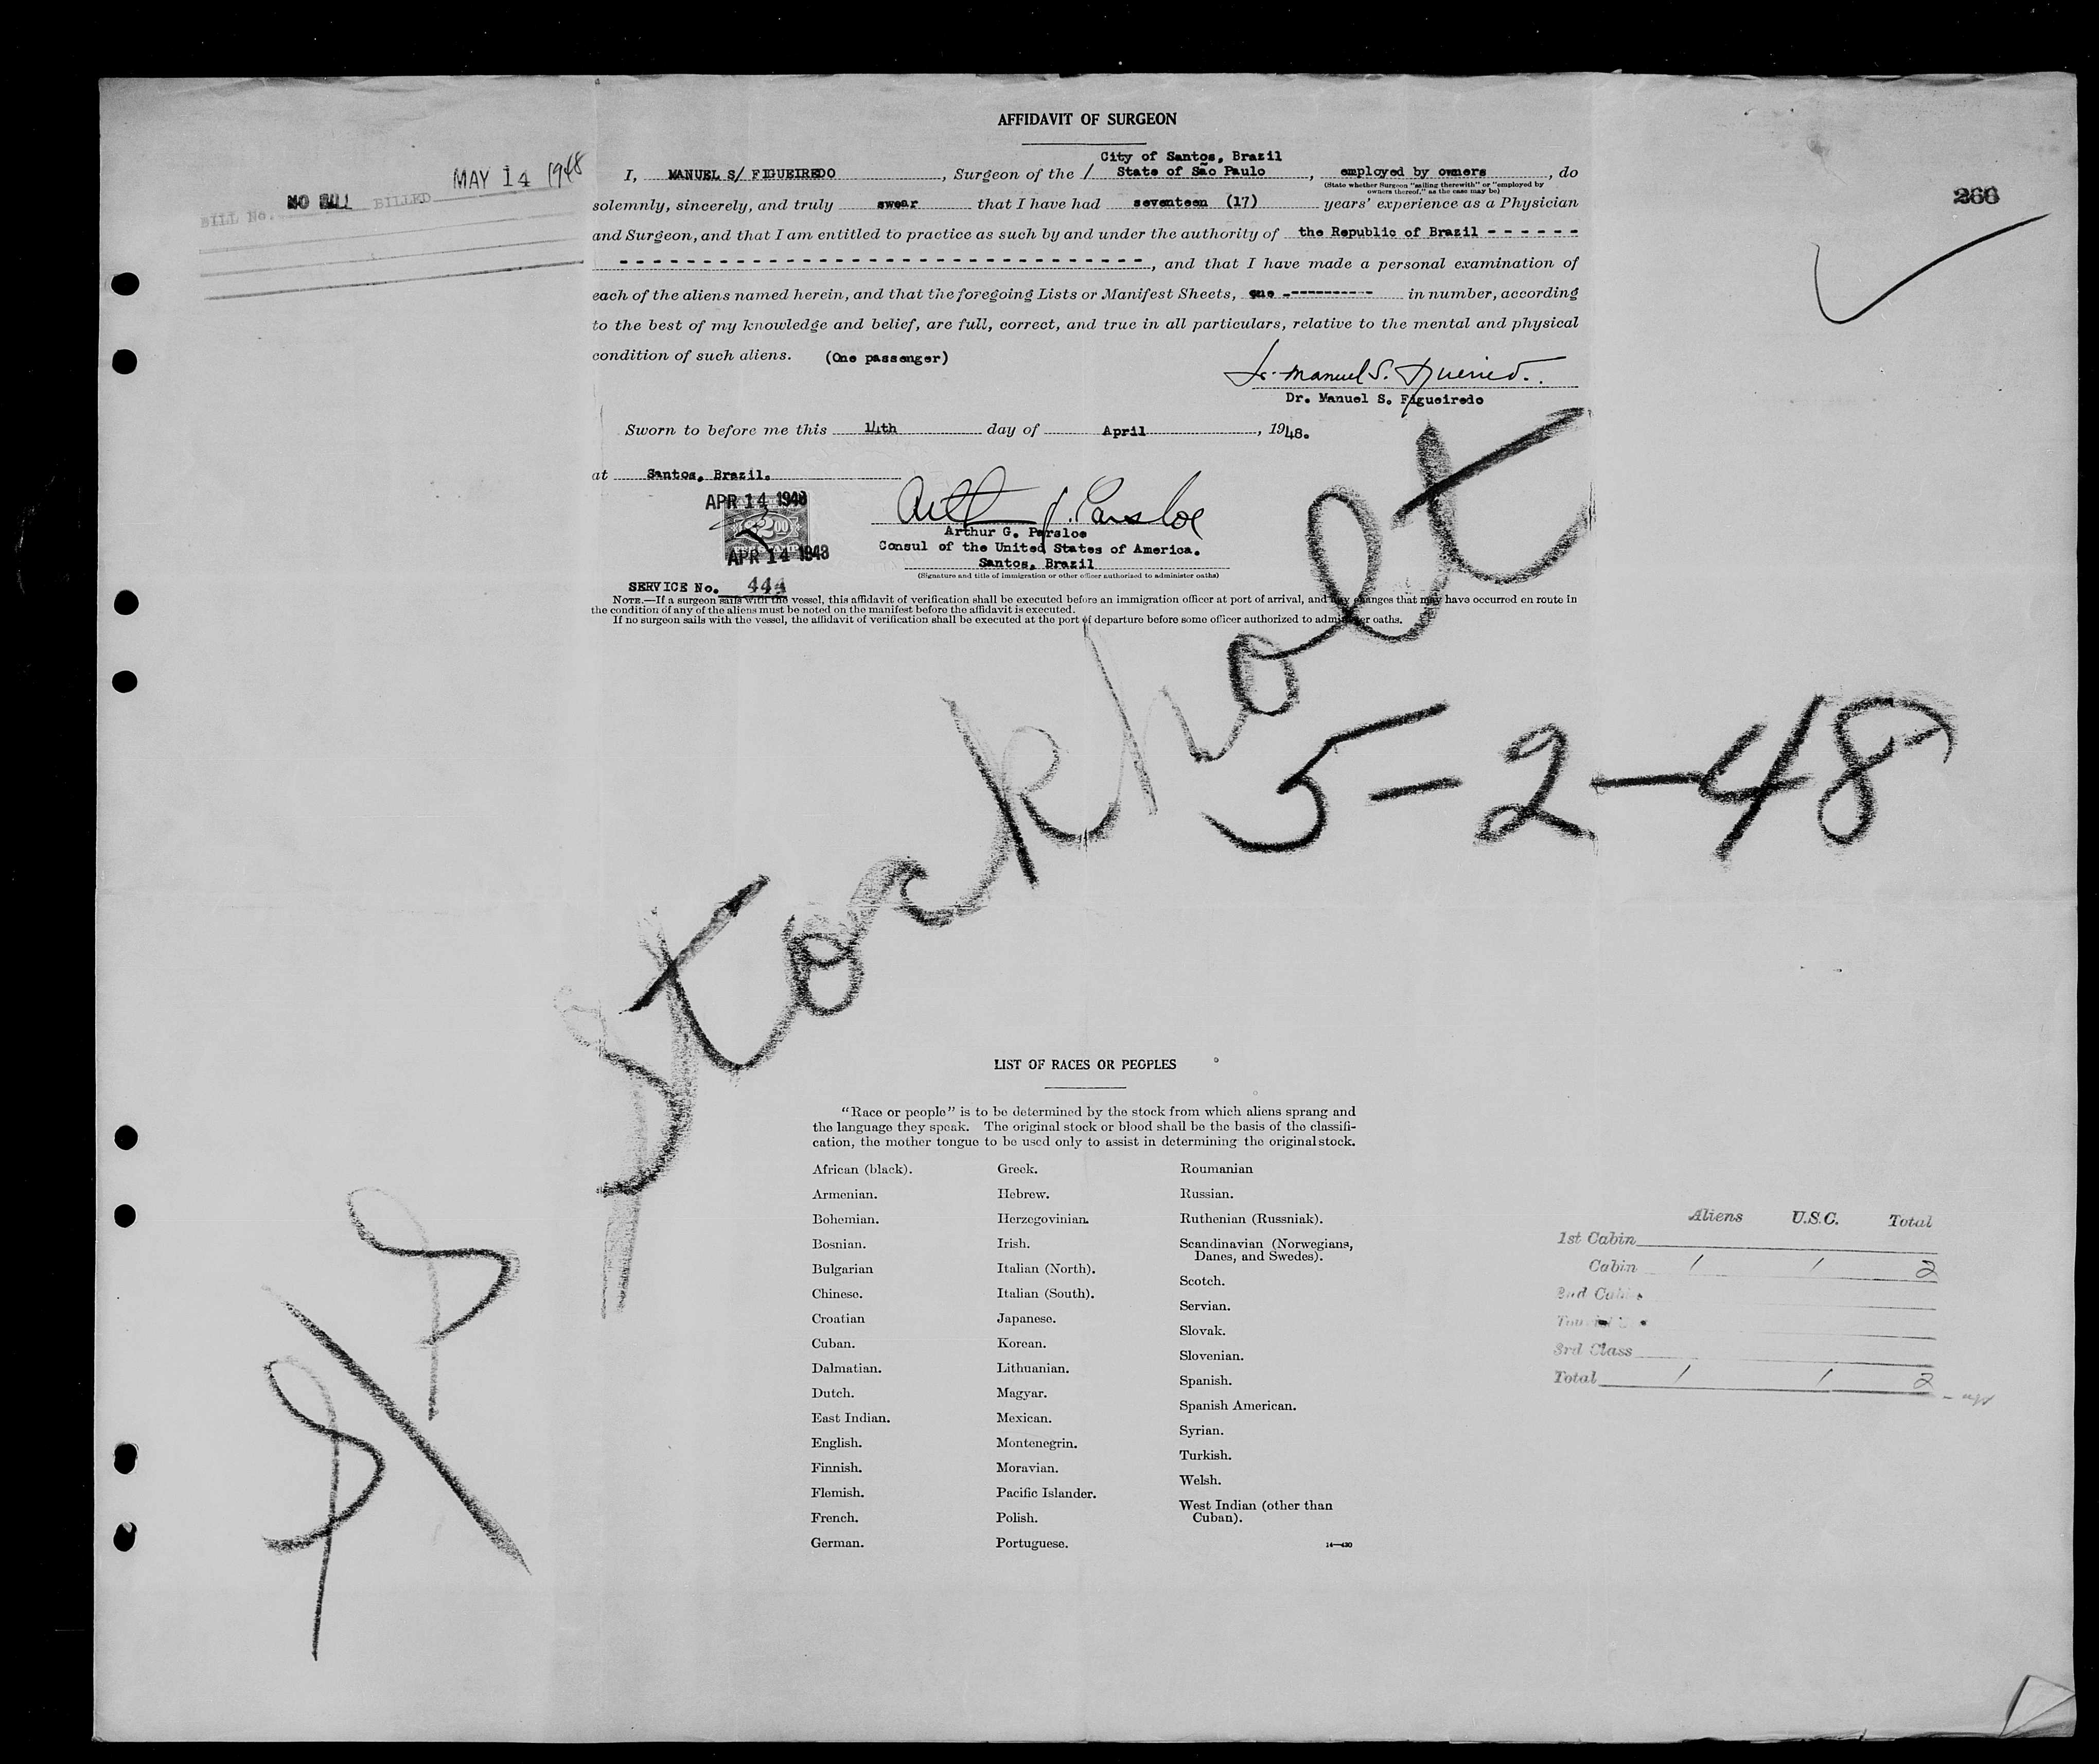 AFFIDAVIT OF SURGEON
MAY 14 1948
NO BILL
BILL No. BILLED
266
City of Santos, Brazil
I, MANUEL S/ FIGUEIREDO, Surgeon of the / State of São Paulo, employed by owners, do
(State whether Surgeon "sailing therewith" or "employed by
owners thereof," as the case may be)
solemnly, sincerely, and truly swear that I have had seventeen (17) years' experience as a Physician
and Surgeon, and that I am entitled to practice as such by and under the authority of the Republic of Brazil - - - - - -
- - - - - - - - - - - - - - - - - - - - - - - - - - - - - - - -, and that I have made a personal examination of
each of the aliens named herein, and that the foregoing Lists or Manifest Sheets, one ----------- in number, according
to the best of my knowledge and belief, are full, correct, and true in all particulars, relative to the mental and physical
condition of such aliens. (One passenger)
Dr. Manuel S. Figueiredo
Dr. Manuel S. Figueiredo
Sworn to before me this 14th day of April, 1948.
at Santos, Brazil.
APR 14 1948
$2.00
APR 14 1948
Arthur G. Parsloe
Arthur G. Parsloe
Consul of the United States of America.
Santos, Brazil
(Signature and title of immigration or other officer authorized to administer oaths)
SERVICE No. 444
NOTE.—If a surgeon sails with the vessel, this affidavit of verification shall be executed before an immigration officer at port of arrival, and any changes that may have occurred en route in
the condition of any of the aliens must be noted on the manifest before the affidavit is executed.
If no surgeon sails with the vessel, the affidavit of verification shall be executed at the port of departure before some officer authorized to administer oaths.
S/S Stockholt
5-2-48
LIST OF RACES OR PEOPLES
"Race or people" is to be determined by the stock from which aliens sprang and
the language they speak. The original stock or blood shall be the basis of the classifi-
cation, the mother tongue to be used only to assist in determining the original stock.
African (black).
Armenian.
Bohemian.
Bosnian.
Bulgarian
Chinese.
Croatian
Cuban.
Dalmatian.
Dutch.
East Indian.
English.
Finnish.
Flemish.
French.
German.
Greek.
Hebrew.
Herzegovinian.
Irish.
Italian (North).
Italian (South).
Japanese.
Korean.
Lithuanian.
Magyar.
Mexican.
Montenegrin.
Moravian.
Pacific Islander.
Polish.
Portuguese.
Roumanian
Russian.
Ruthenian (Russniak).
Scandinavian (Norwegians,
Danes, and Swedes).
Scotch.
Servian.
Slovak.
Slovenian.
Spanish.
Spanish American.
Syrian.
Turkish.
Welsh.
West Indian (other than
Cuban).
14—430
Aliens U.S.C. Total
1st Cabin
Cabin 1 1 2
2nd Cabin
3rd Class
Total 1 1 2